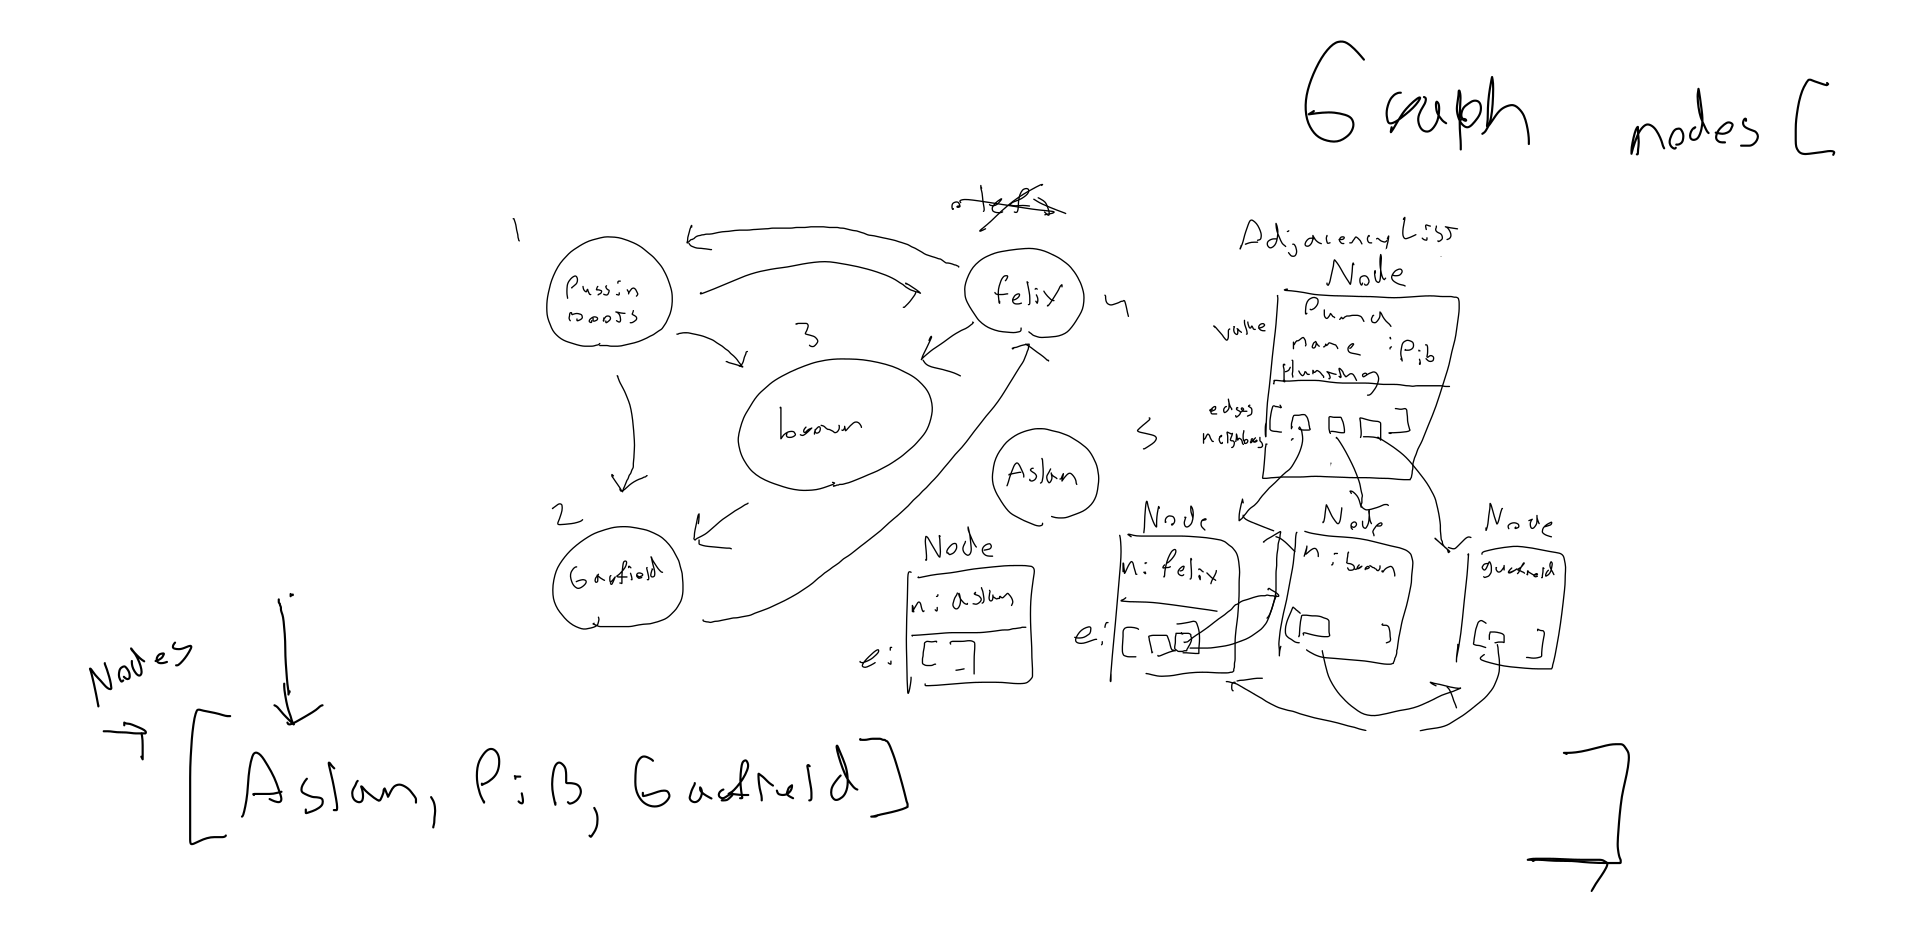 Graph nodes [
1
Puss in
BOOTS
felix
4
3
brown
Aslan
5
2
Garfield
Adjacency List
Node
value
Puma
name : Pib
Hunting
edges
neighbors
[ ]
Node
n : aslan
e : [ ]
Node
n : felix
e : [ ]
Node
n : brown
[ ]
Node
garfield
[ ]
Nodes
[Aslan, PiB, Garfield]
]